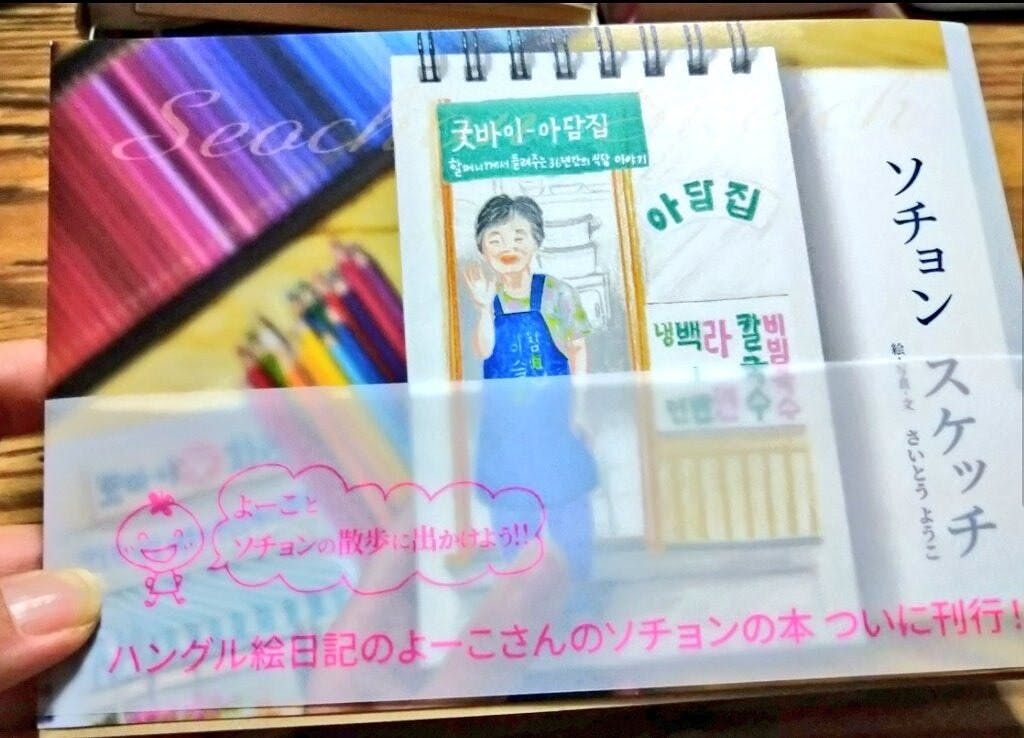 Seoch
굿바이-아담집
할머니께서 들려주는 36년간의 식당 이야기
아담집
냉
백
라
칼국수
비빔
ソチョン スケッチ
絵・写真・文 さいとう ようこ
よーこと
ソチョンの散歩に出かけよう!!
ハングル絵日記のよーこさんのソチョンの本 ついに刊行!